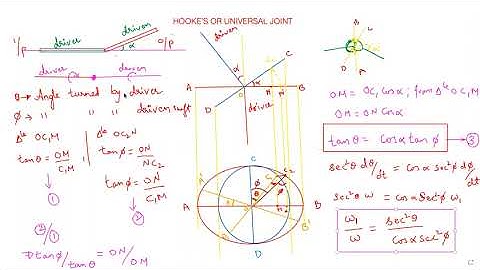 HOOKE'S OR UNIVERSAL JOINT
I/P driver driven O/P
α
driver driven
θ → Angle turned by driver
φ → " " " driven shaft
Δle OC₁M
tanθ = OM/C₁M
①
Δle OC₂N
tanφ = ON/NC₂
tanφ = ON/C₁M
②
②/①
tanφ/tanθ = ON/OM
driven
α
C
A
B
M
N
D
driver
C
C₁
C₂
φ
θ
A'
A
B
B'
D
B
C
D
A
OM = OC₁ Cosα; from Δle OC₁M
OM = ON Cosα
tanθ = Cosα tanφ ③
sec²θ dθ/dt = Cosα sec²φ dφ/dt
sec²θ ω = Cosα Sec²φ ω₁
ω₁/ω = sec²θ/Cosα sec²φ